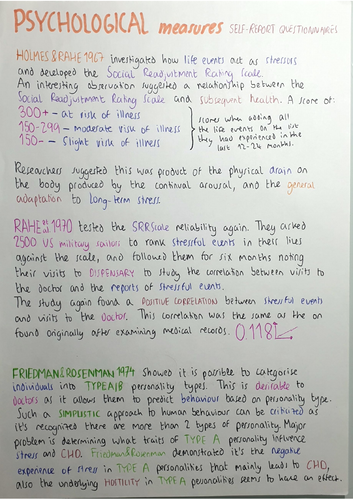 PSYCHOLOGICAL measures SELF-REPORT QUESTIONNAIRES
HOLMES & RAHE 1967 investigated how life events act as stressors
and developed the Social Readjustment Rating Scale.
An interesting observation suggested a relationship between the
Social Readjustment Rating Scale and subsequent health. A score of:
300+ – at risk of illness
150-299 – moderate risk of illness
150- – Slight risk of illness
scores when adding all
the life events on the list
they had experienced in the
last 12-24 months.
Researchers suggested this was product of the physical drain on
the body produced by the continual arousal, and the general
adaptation to long-term stress.
RAHE et al 1970 tested the SRRScale reliability again. They asked
2500 US military sailors to rank stressful events in their lives
against the scale, and followed them for six months noting
their visits to DISPENSARY to study the correlation between visits to
the doctor and the reports of stressful events.
The study again found a POSITIVE CORRELATION between stressful events
and visits to the doctor. This correlation was the same as the on
found originally after examining medical records. 0.118
FRIEDMAN & ROSENMAN 1974 showed it is possible to categorise
individuals into TYPE A/B personality types. This is desirable to
doctors as it allows them to predict behaviour based on personality type.
Such a SIMPLISTIC approach to human behaviour can be criticised as
it's recognised there are more than 2 types of personality. Major
problem is determining what traits of TYPE A personality influence
stress and CHD. Friedman & Rosenman demonstrated it's the negative
experience of stress in TYPE A personalities that mainly leads to CHD,
also the underlying HOSTILITY in TYPE A personalities seems to have an effect.